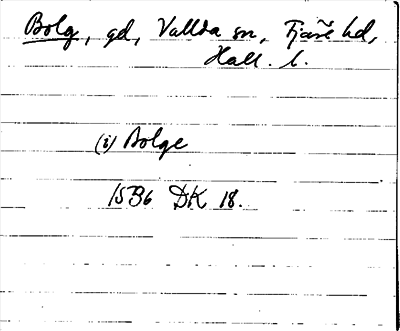 Bolg, gd, Vallda sn, Fjäre hd,
Hall. l.
(i) Bolge
1536 DK 18.